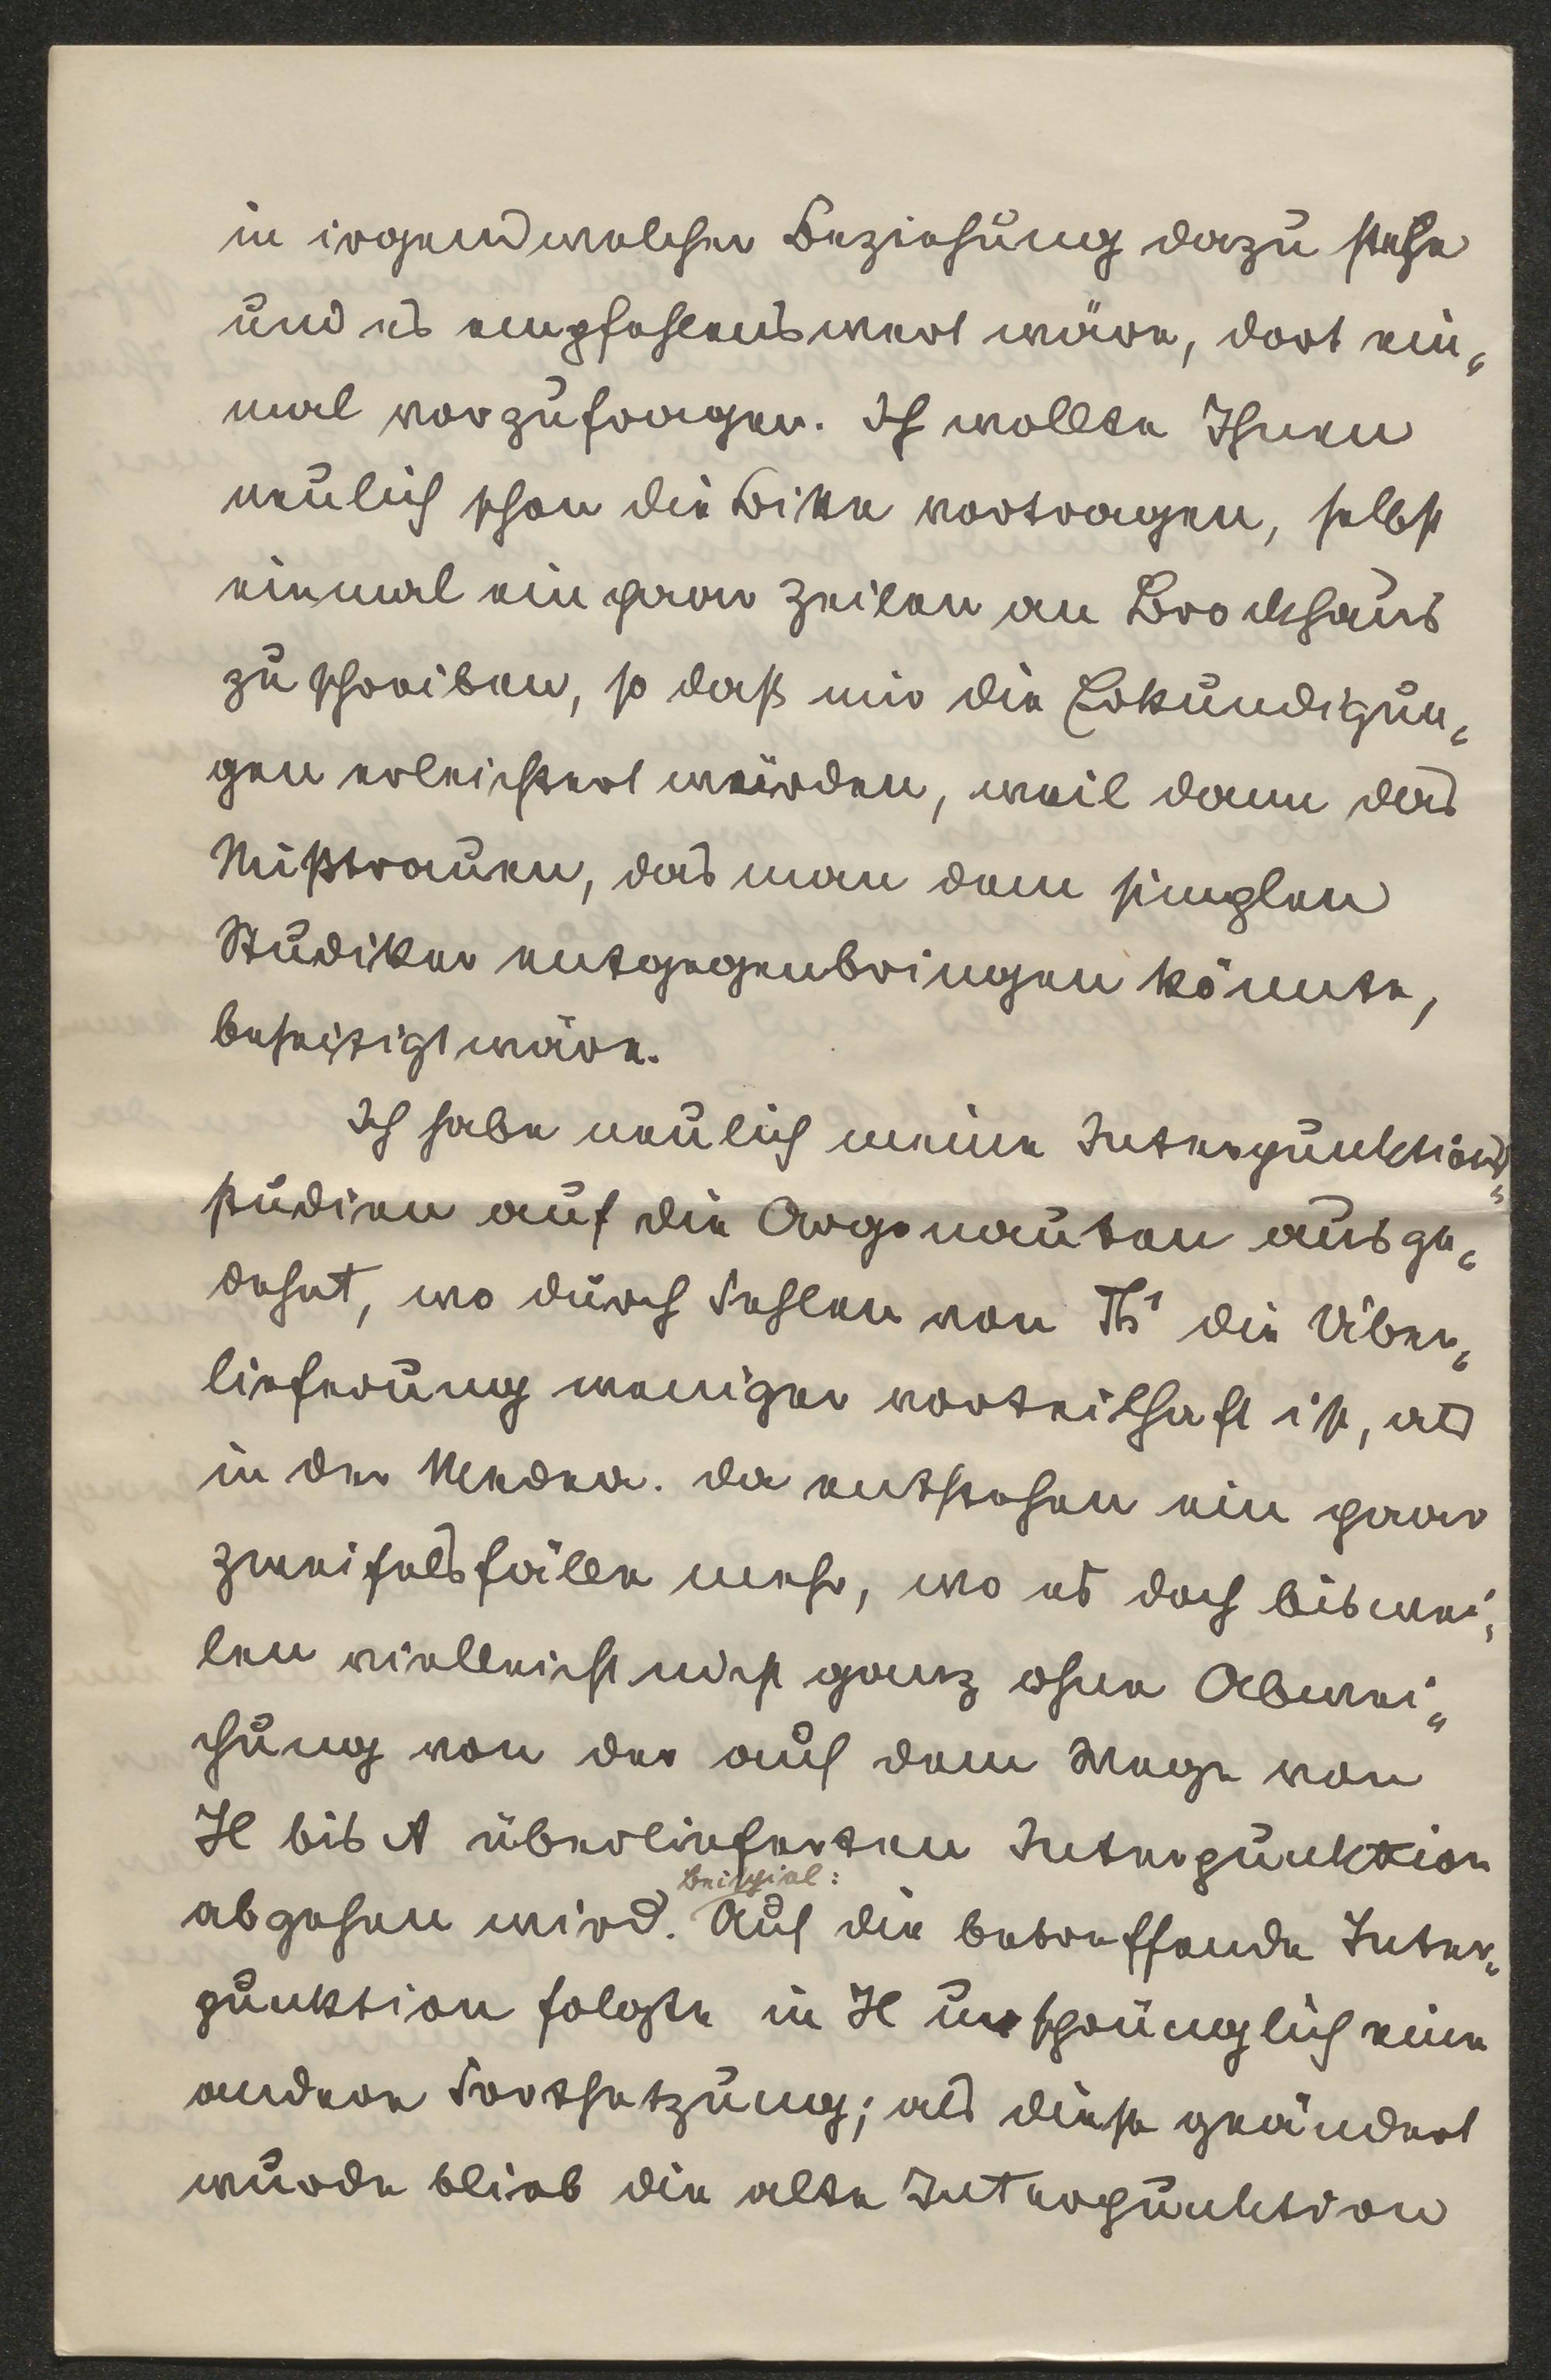 in irgendwelcher Beziehung dazu stehe
und es empfehlenswert wäre, dort ein-
mal vorzufragen. Ich wollte Ihnen
neulich schon die Bitte vortragen, selbst
einmal ein paar Zeilen an Brockhaus
zu schreiben, so daß mir die Erkundigun-
gen erleichtert würden, weil dann das
Mißtrauen, das man dem simplen
Studiker entgegenbringen könnte,
beseitigt wäre.
Ich habe neulich meine Interpunktions-
studien auf die Argonauten ausge-
dehnt, wo durch Fehlen von Th¹ die Über-
lieferung weniger vorteilhaft ist, als
in der Medea. Da entstehen ein paar
Zweifelsfälle mehr, wo es doch biswei-
len vielleicht nicht ganz ohne Abwei-
chung von der auf dem Wege von
H bis A überlieferten Interpunktion
abgehen wird. Beispiel: Auf die betreffende Inter-
punktion folgte in H ursprünglich eine
andere Fortsetzung; als diese geändert
wurde blieb die alte Interpunktion